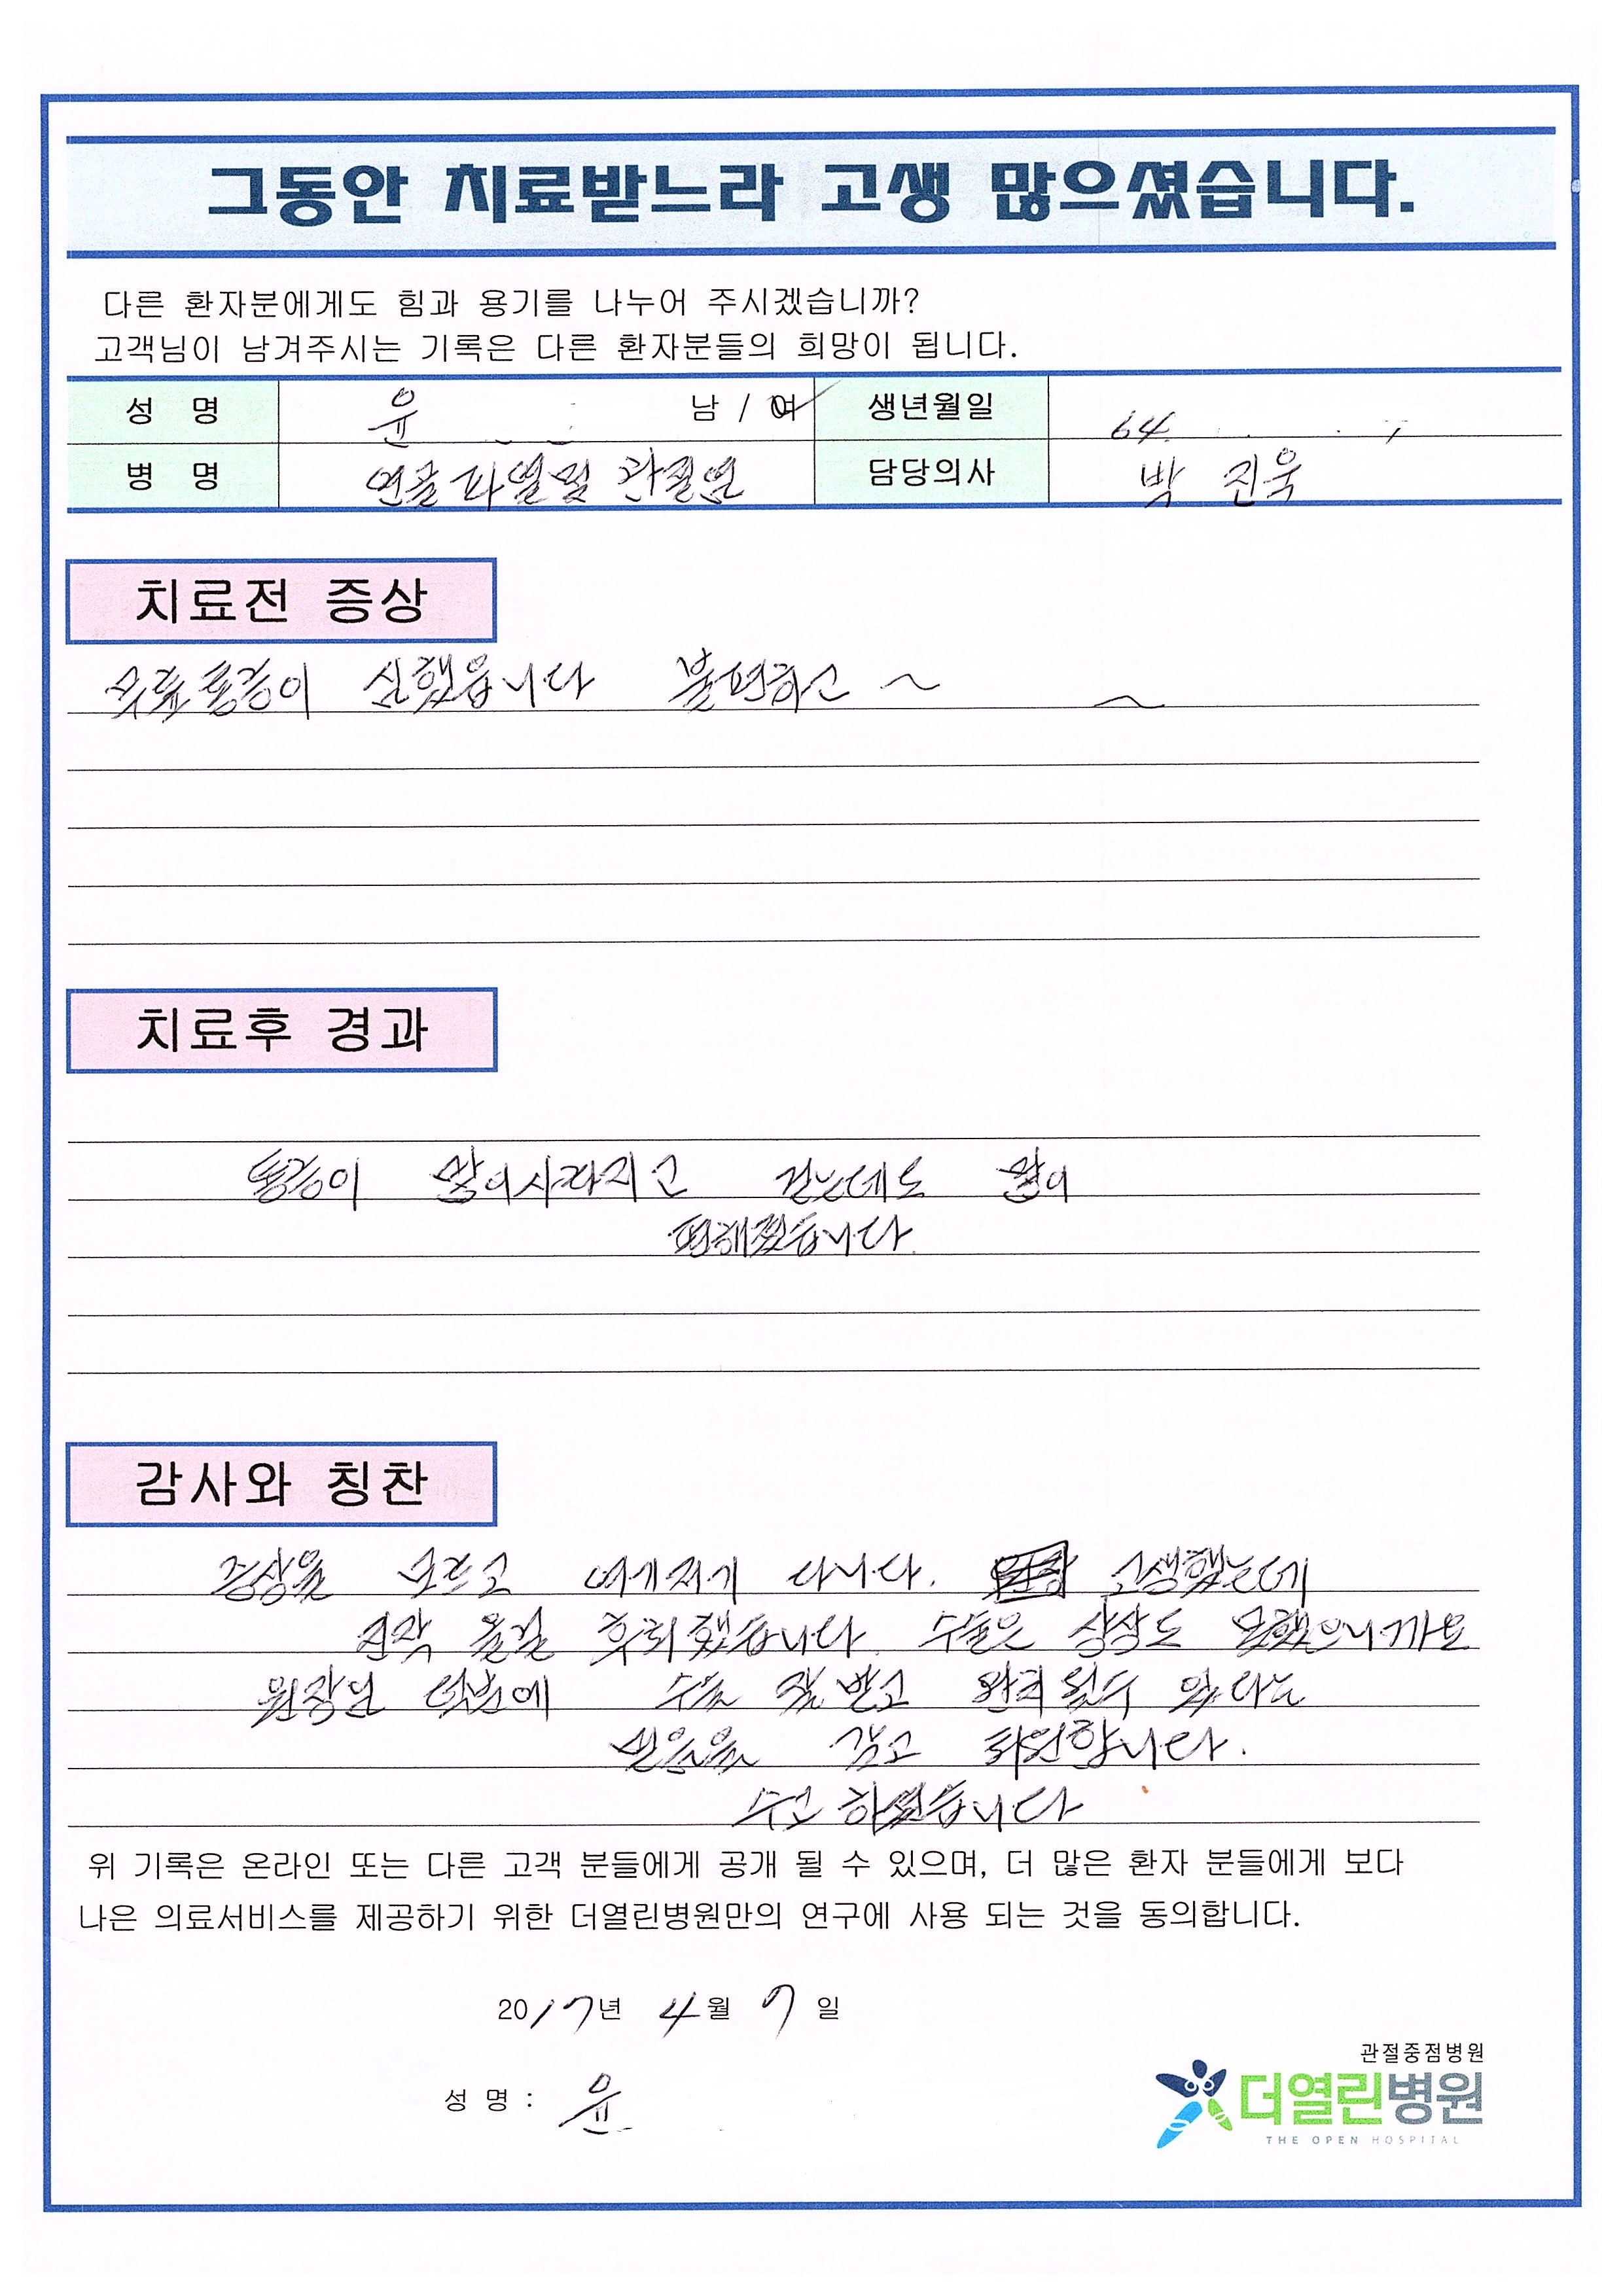 그동안 치료받느라 고생 많으셨습니다.
다른 환자분에게도 힘과 용기를 나누어 주시겠습니까?
고객님이 남겨주시는 기록은 다른 환자분들의 희망이 됩니다.
성 명 윤 남 / 여 생년월일 64.
병 명 연골파열및 관절염 담당의사 박 진욱
치료전 증상
무릎통증이 심했읍니다 불편하고 ~
치료후 경과
통증이 많이사라지고 걷는데도 많이
편해졌습니다
감사와 칭찬
증상을 모르고 여게저게 다니다. 고생했는데
진작 올걸 후회했습니다. 수술은 상상도 못했으니까요
원장님 덕분에 수술 잘 받고 완쾌될수 있다는
믿음을 갖고 퇴원합니다.
수고 하셨습니다
위 기록은 온라인 또는 다른 고객 분들에게 공개 될 수 있으며, 더 많은 환자 분들에게 보다
나은 의료서비스를 제공하기 위한 더열린병원만의 연구에 사용 되는 것을 동의합니다.
2017년 4월 7일
성 명 : 윤
관절중점병원
더열린병원
THE OPEN HOSPITAL